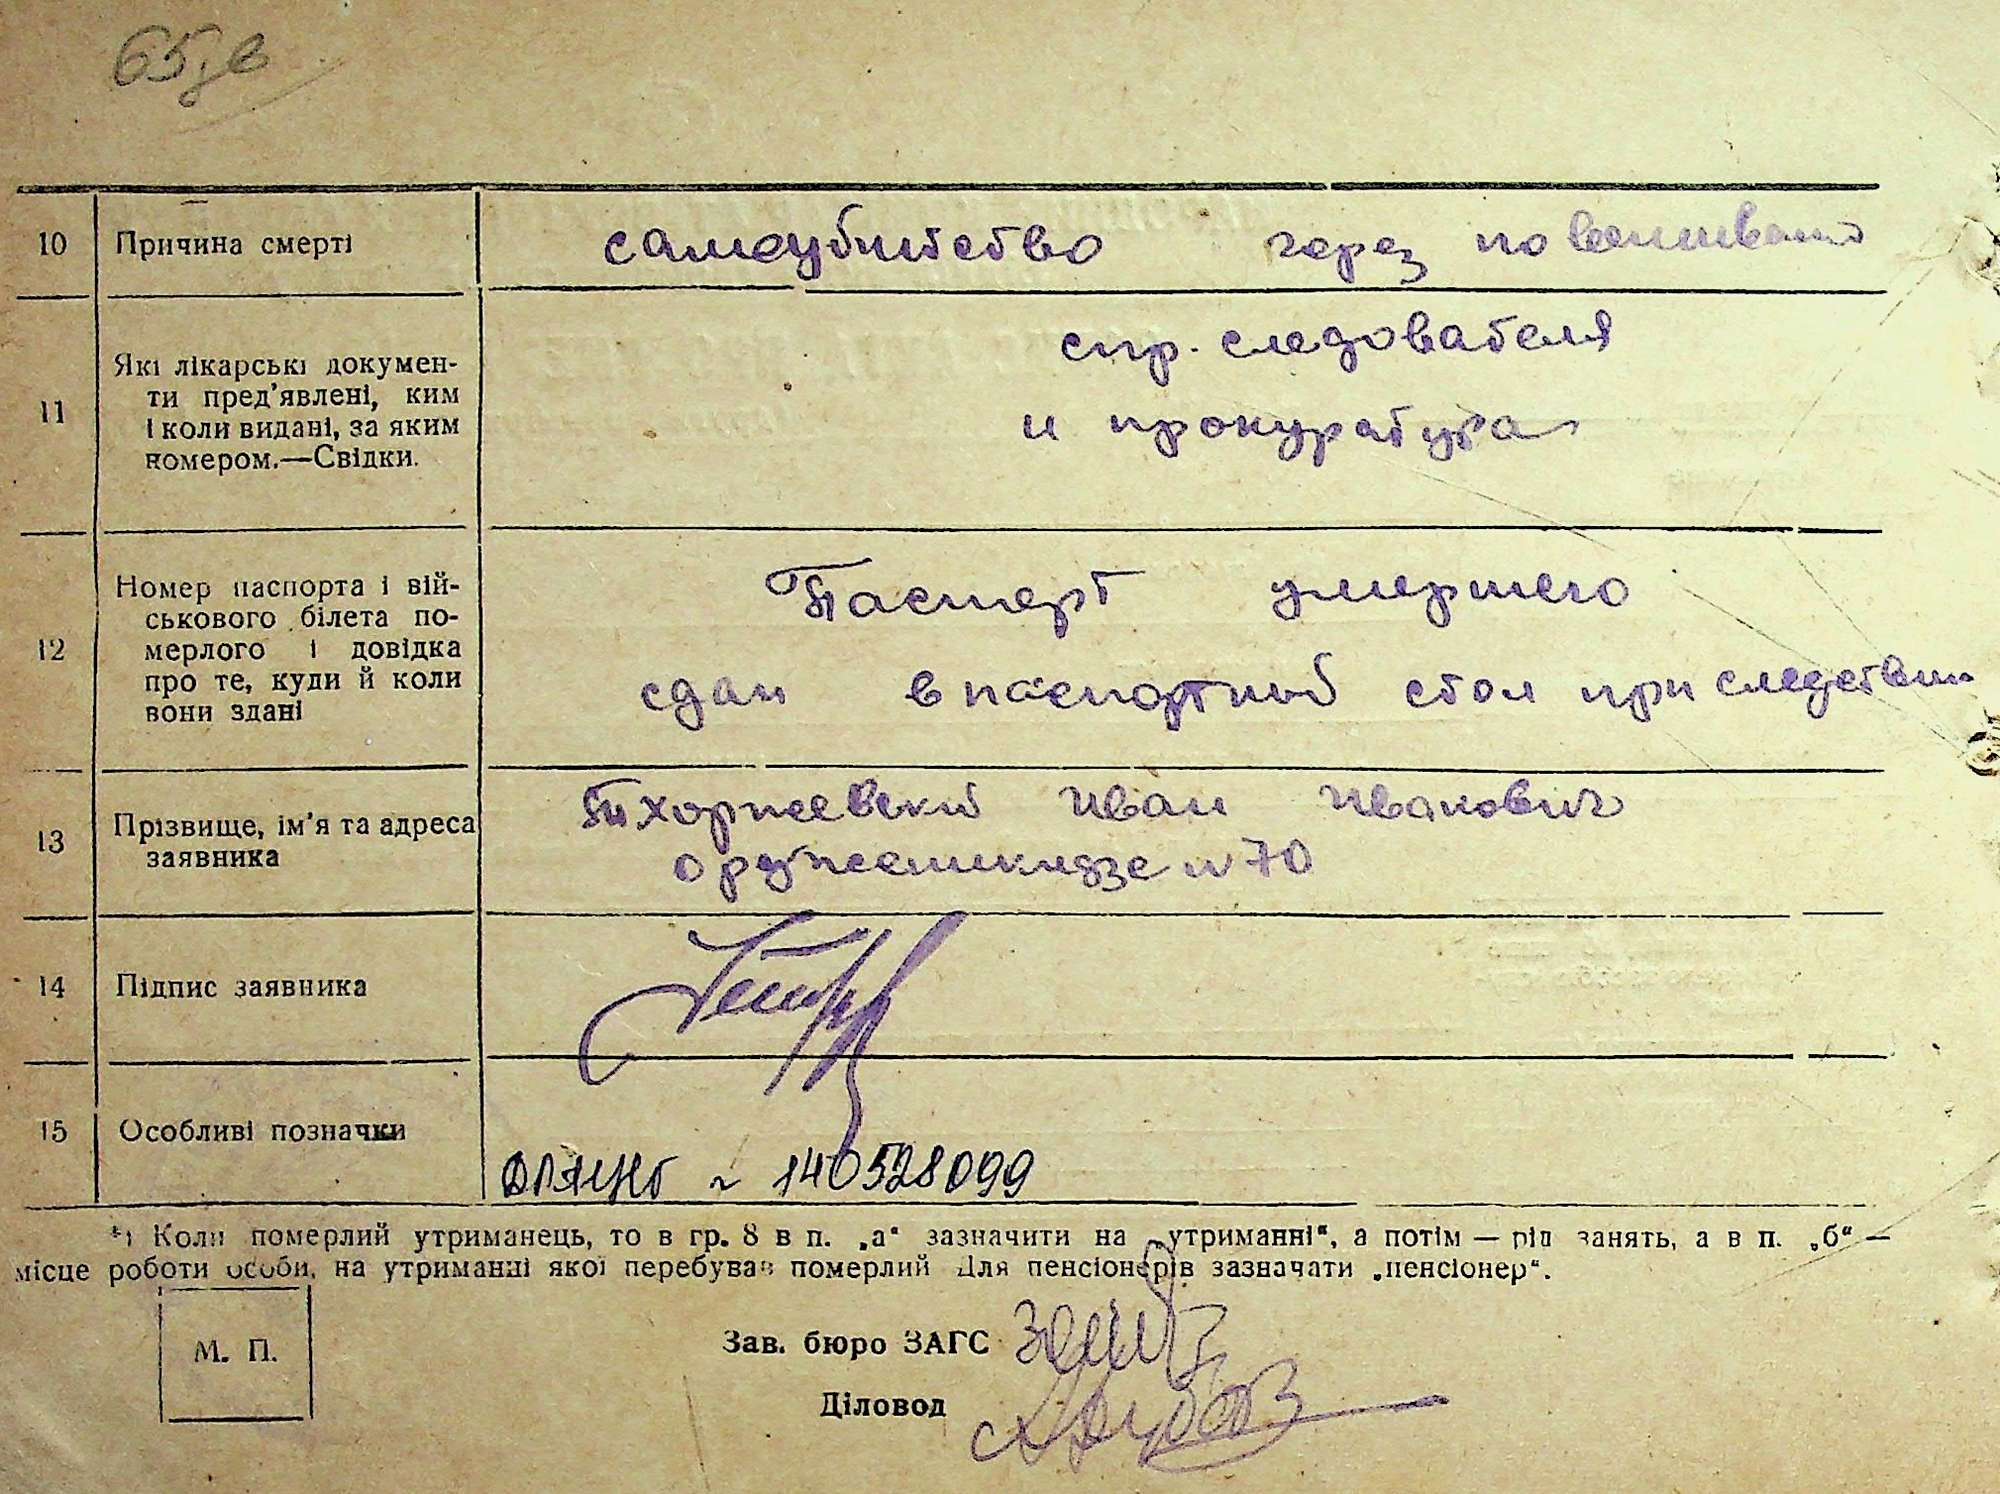 65,в
10 Причина смерті самоубийство через повешивание
11 Які лікарські докумен-
ти пред’явлені, ким
і коли видані, за яким
номером.—Свідки.
спр. следователя
и прокуратура
12 Номер паспорта і вій-
ськового білета по-
мерлого і довідка
про те, куди й коли
вони здані
Паспорт умершего
сдан в паспортный стол при следствии
13 Прізвище, ім’я та адреса
заявника
Тхоржевский Иван Иванович
Орджоникидзе № 70
14 Підпис заявника
15 Особливі позначки
ДРАЦНб № 140528099
*) Коли померлий утриманець, то в гр. 8 в п. „а“ зазначити на „утриманні“, а потім — рід занять, а в п. „б“ —
місце роботи особи, на утриманні якої перебував померлий Для пенсіонерів зазначати „пенсіонер“.
М. П.
Зав. бюро ЗАГС
Діловод